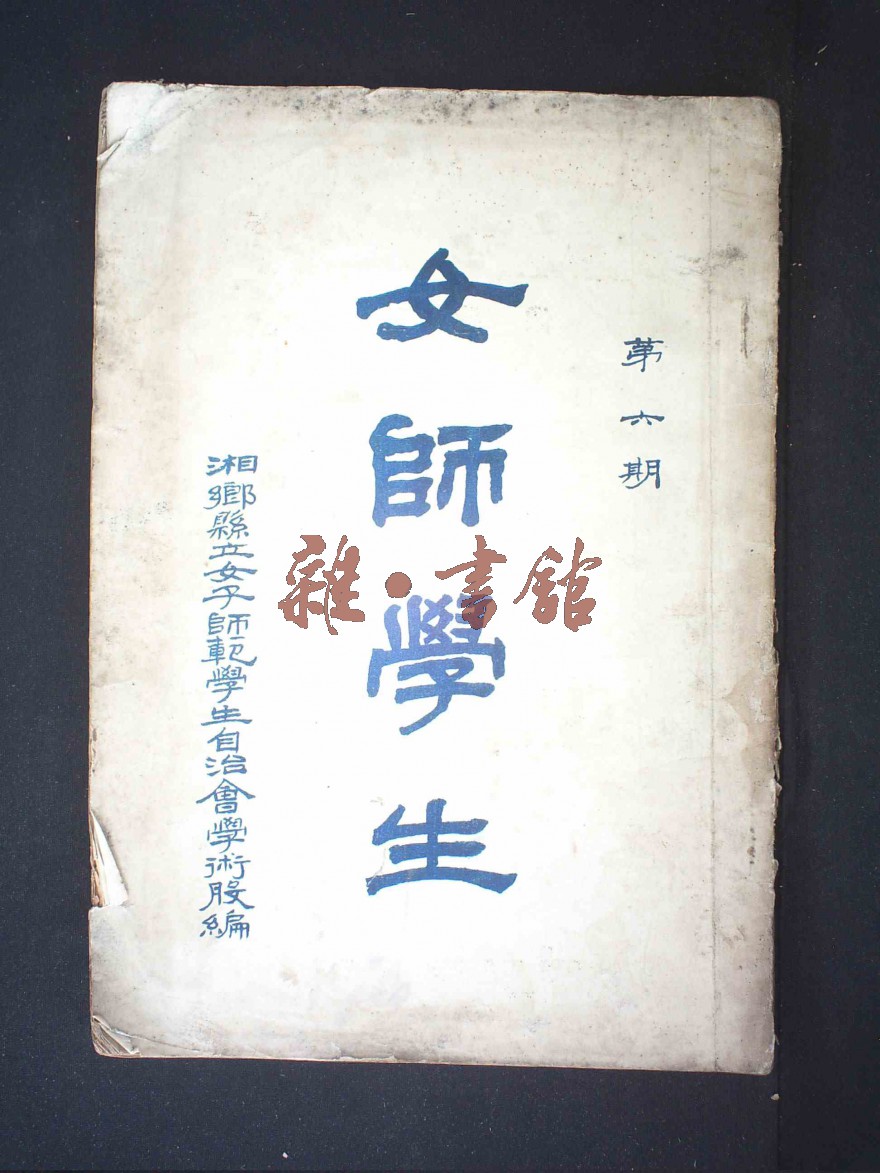 第六期
女師學生
湘鄉縣立女子師範學生自治會學術股編
雜·書館